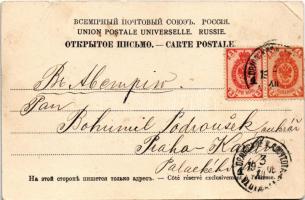 ВСЕМІРНЫЙ ПОЧТОВЫЙ СОЮЗЪ. РОССІЯ.
UNION POSTALE UNIVERSELLE. RUSSIE.
ОТКРЫТОЕ ПИСЬМО. — CARTE POSTALE.
Въ Австрію
Pan
Bohumil Podroušek
Praha-Kar
Palackého
На этой сторонѣ пишется только адресъ. — Côté réservé exclusivement à l'adresse.